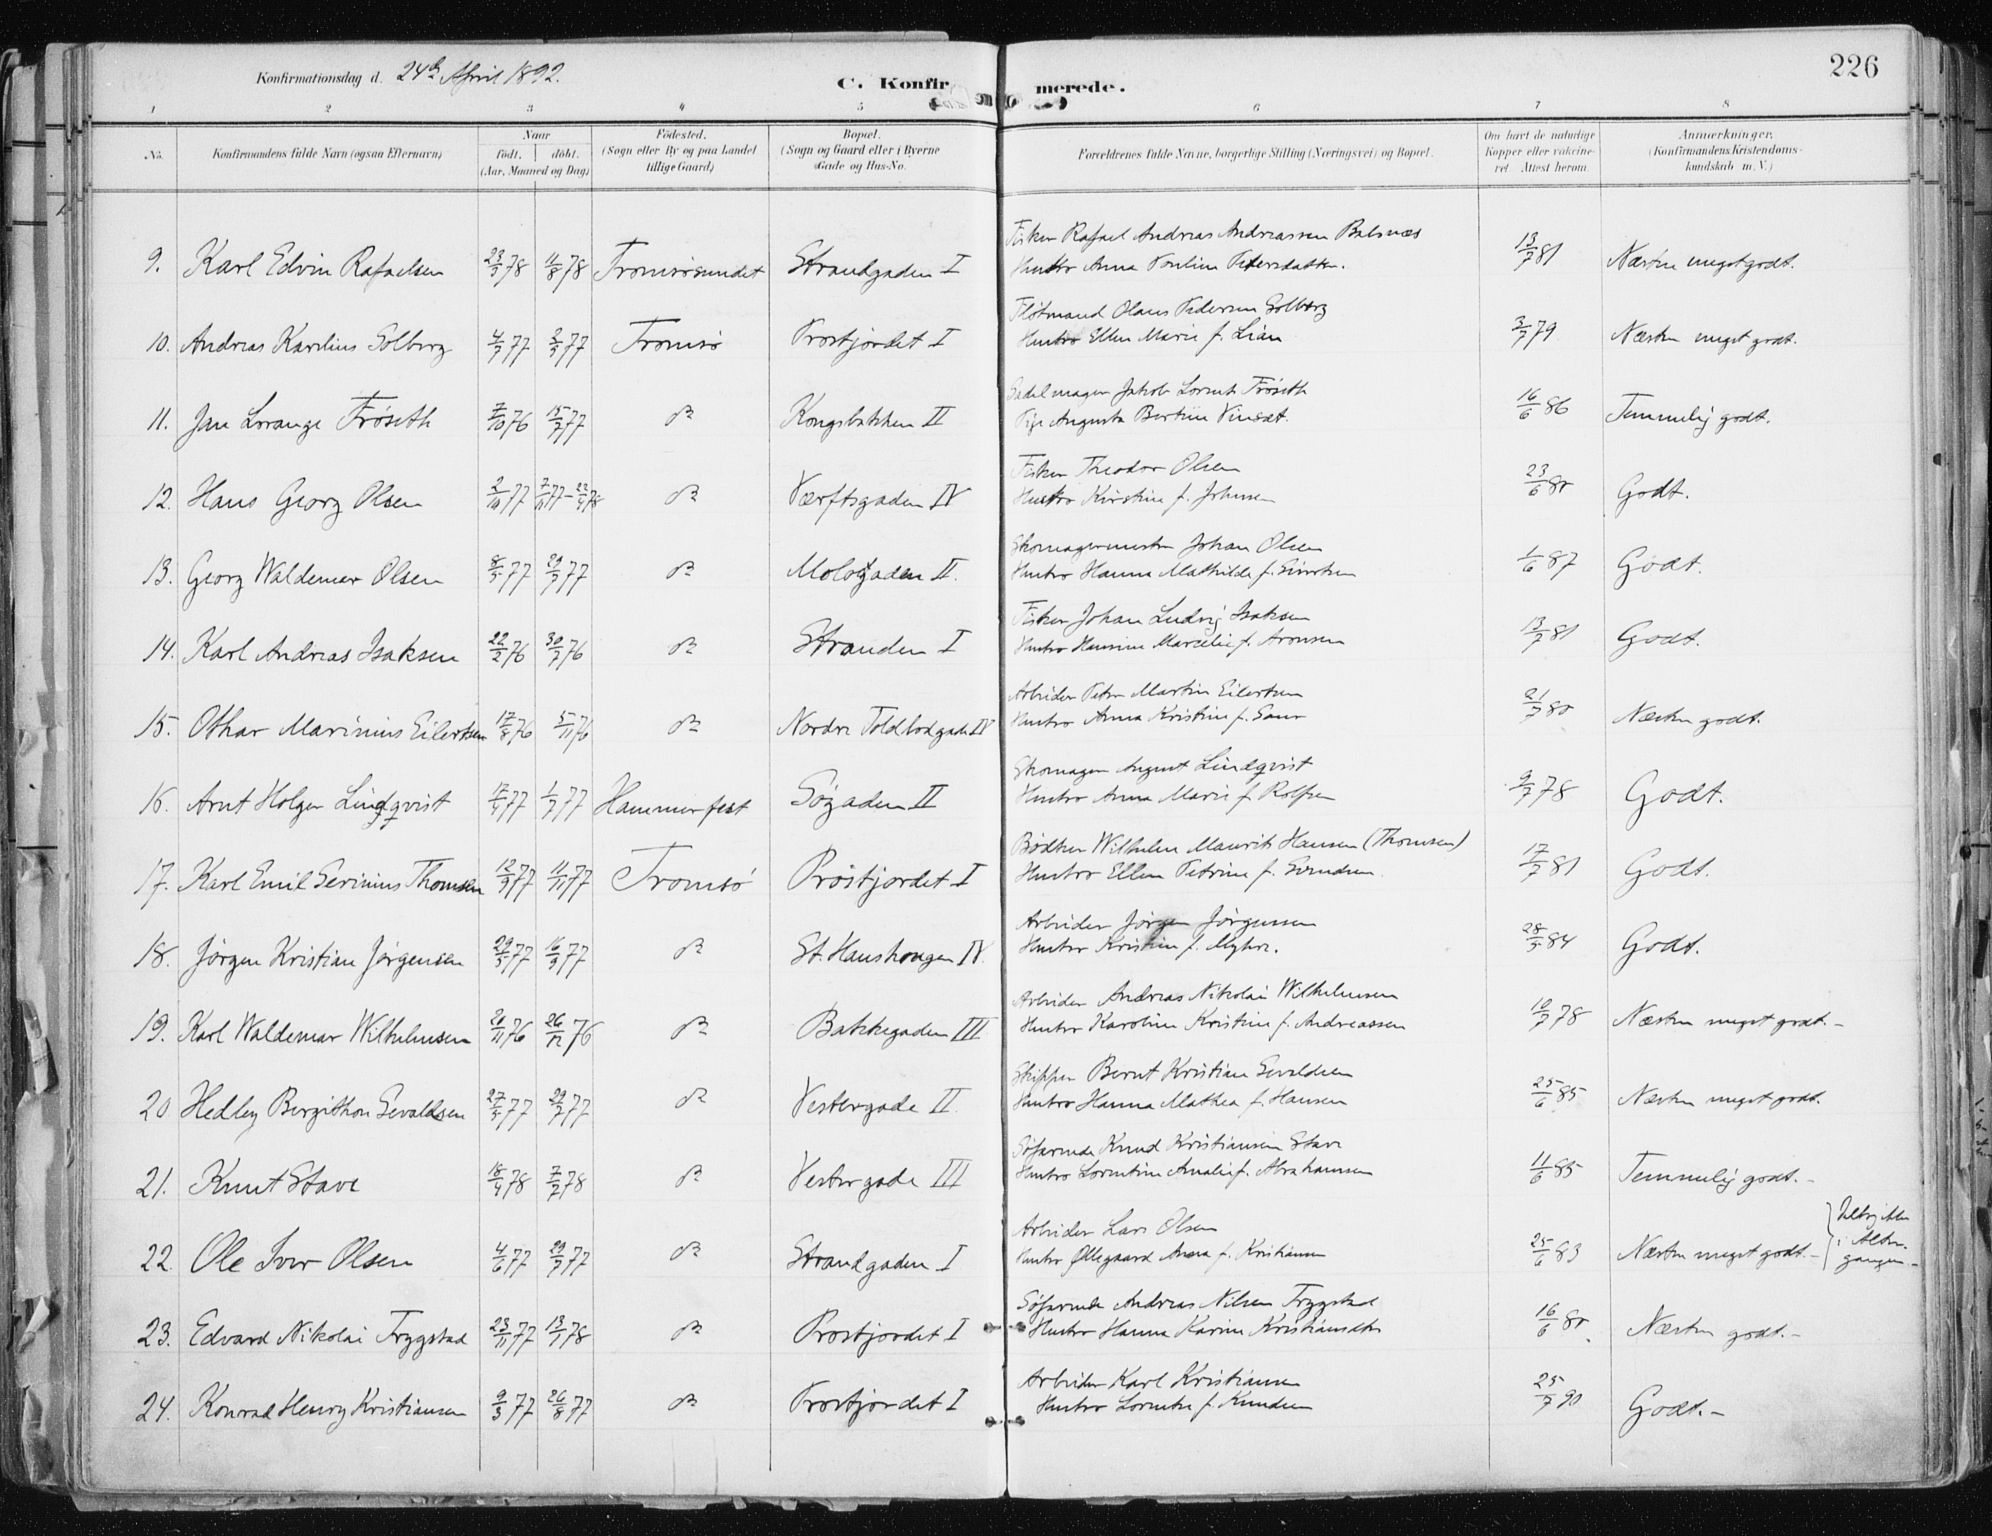 226
Konfirmationsdag d. 24de April 1892.
C. Konfirmerede.
1 2 3 4 5 6 7 8
No. Konfirmandens fulde Navn (ogsaa Efternavn) Naar født, døbt. (Aar, Maaned og Dag) Fødested. (Sogn eller By og paa Landet tillige Gaard) Bopæl. (Sogn og Gaard eller i Byerne Gade og Hus-No. Forældrenes fulde Navne, borgerlige Stilling (Næringsvei) og Bopæl. Om havt de naturlige Kopper eller vaccineret. Attest herom. Anmærkninger. (Konfirmandens Kristendomskundskab m. V.)
Fisker Rafael Andreas Andreassen Balsnæs
9. Karl Edvin Rafaelsen 23/5 78 11/8 78 Tromsøsundet Strandgaden I Hustro Anna Paulina Petersdatter. 13/7 81 Næsten meget godt.
Fløtmand Olaus Pedersen Solberg
10. Andreas Karelius Solberg 4/7 77 2/9 77 Tromsø Prostjordet I Hustro Ellen Marie f. Lian 3/7 79 Næsten meget godt.
Sadelmager Jakob Lornts Frøseth
11. Jan Lorange Frøseth 7/10 76 15/7 77 do Kongsbakken II Pige Augusta Bertine Vinsæt. 16/6 86 Temmelig godt.
Fisker Theodor Olsen
12. Hans Georg Olsen 2/10 77 7/11 77 - 22/4 78 do Værftsgaden IV Hustro Kirstine f. Johnsen 23/6 80 Godt.
Skomagermester Johan Olsen
13. Georg Waldemar Olsen 8/5 77 29/7 77 do Mologaden II. Hustro Hanna Mathilde f. Sivertsen 1/6 87 Godt.
Fisker Johan Ludvig Isaksen
14. Karl Andreas Isaksen 22/2 76 30/7 76 do Stranden I Hustro Hansine Marcelie f. Aronsen 13/7 81 Godt.
Arbeider Peter Martin Eilertsen
15. Othar Marinius Eilertsen 17/8 76 5/11 76 do Nordre Toldbodgade IV Hustro Anna Kristine f. Saur 21/7 80 Næsten godt.
Skomager August Lindqvist
16. Arnt Holger Lindqvist 17/4 77 1/7 77 Hammerfest Søgaden II Hustro Anna Marie f. Rolfsen 9/7 78 Godt.
Bødker Wilhelm Maurits Hansen (Thomsen)
17. Karl Emil Serinius Thomsen 12/9 77 11/11 77 Tromsø Prostjordet I Hustro Ellen Petrine f. Svendsen 17/7 81 Godt.
Arbeider Jørgen Jørgensen
18. Jørgen Kristian Jørgensen 29/5 77 16/9 77 do St. Hanshaugen IV. Hustro Kristine f. Myhre. 28/5 84 Godt.
Arbeider Andreas Nikolai Wilhelmsen
19. Karl Waldemar Wilhelmsen 20/11 76 26/12 76 do Bakkegaden III Hustro Karoline Kristine f. Andreassen 10/7 78 Næsten meget godt. -
Skipper Bernt Kristian Sevaldsen
20. Hedley Bergithon Sevaldsen 27/4 77 29/7 77 do Vestergade II. Hustro Hanna Mathea f. Hansen 25/6 85 Næsten meget godt.
Søfarende Knud Kristiansen Stave
21. Knut Stave 18/4 78 7/7 78 do Vestergade III Hustro Lorentine Amalie f. Abrahamsen 11/6 85 Temmelig godt. -
Arbeider Lars Olsen
22. Ole Iver Olsen 4/6 77 29/7 77 do Strandgaden I Hustro Øllegaard Anna f. Kristiansen 25/6 83 Næsten meget godt. - Deltog ikke i Altergangen -
Søfarende Andreas Nilsen Trygstad
23. Edvard Nikolai Trygstad 23/11 77 13/1 78 do Prostjordet I Hustro Hanna Karine Kristiansdtr 16/6 80. Næsten godt. -
Arbeider Karl Kristiansen
24. Konrad Henry Kristiansen 9/3 77 26/8 77 do Prostjordet I Hustro Lorentse f. Knudsen 25/7 90 Godt. -